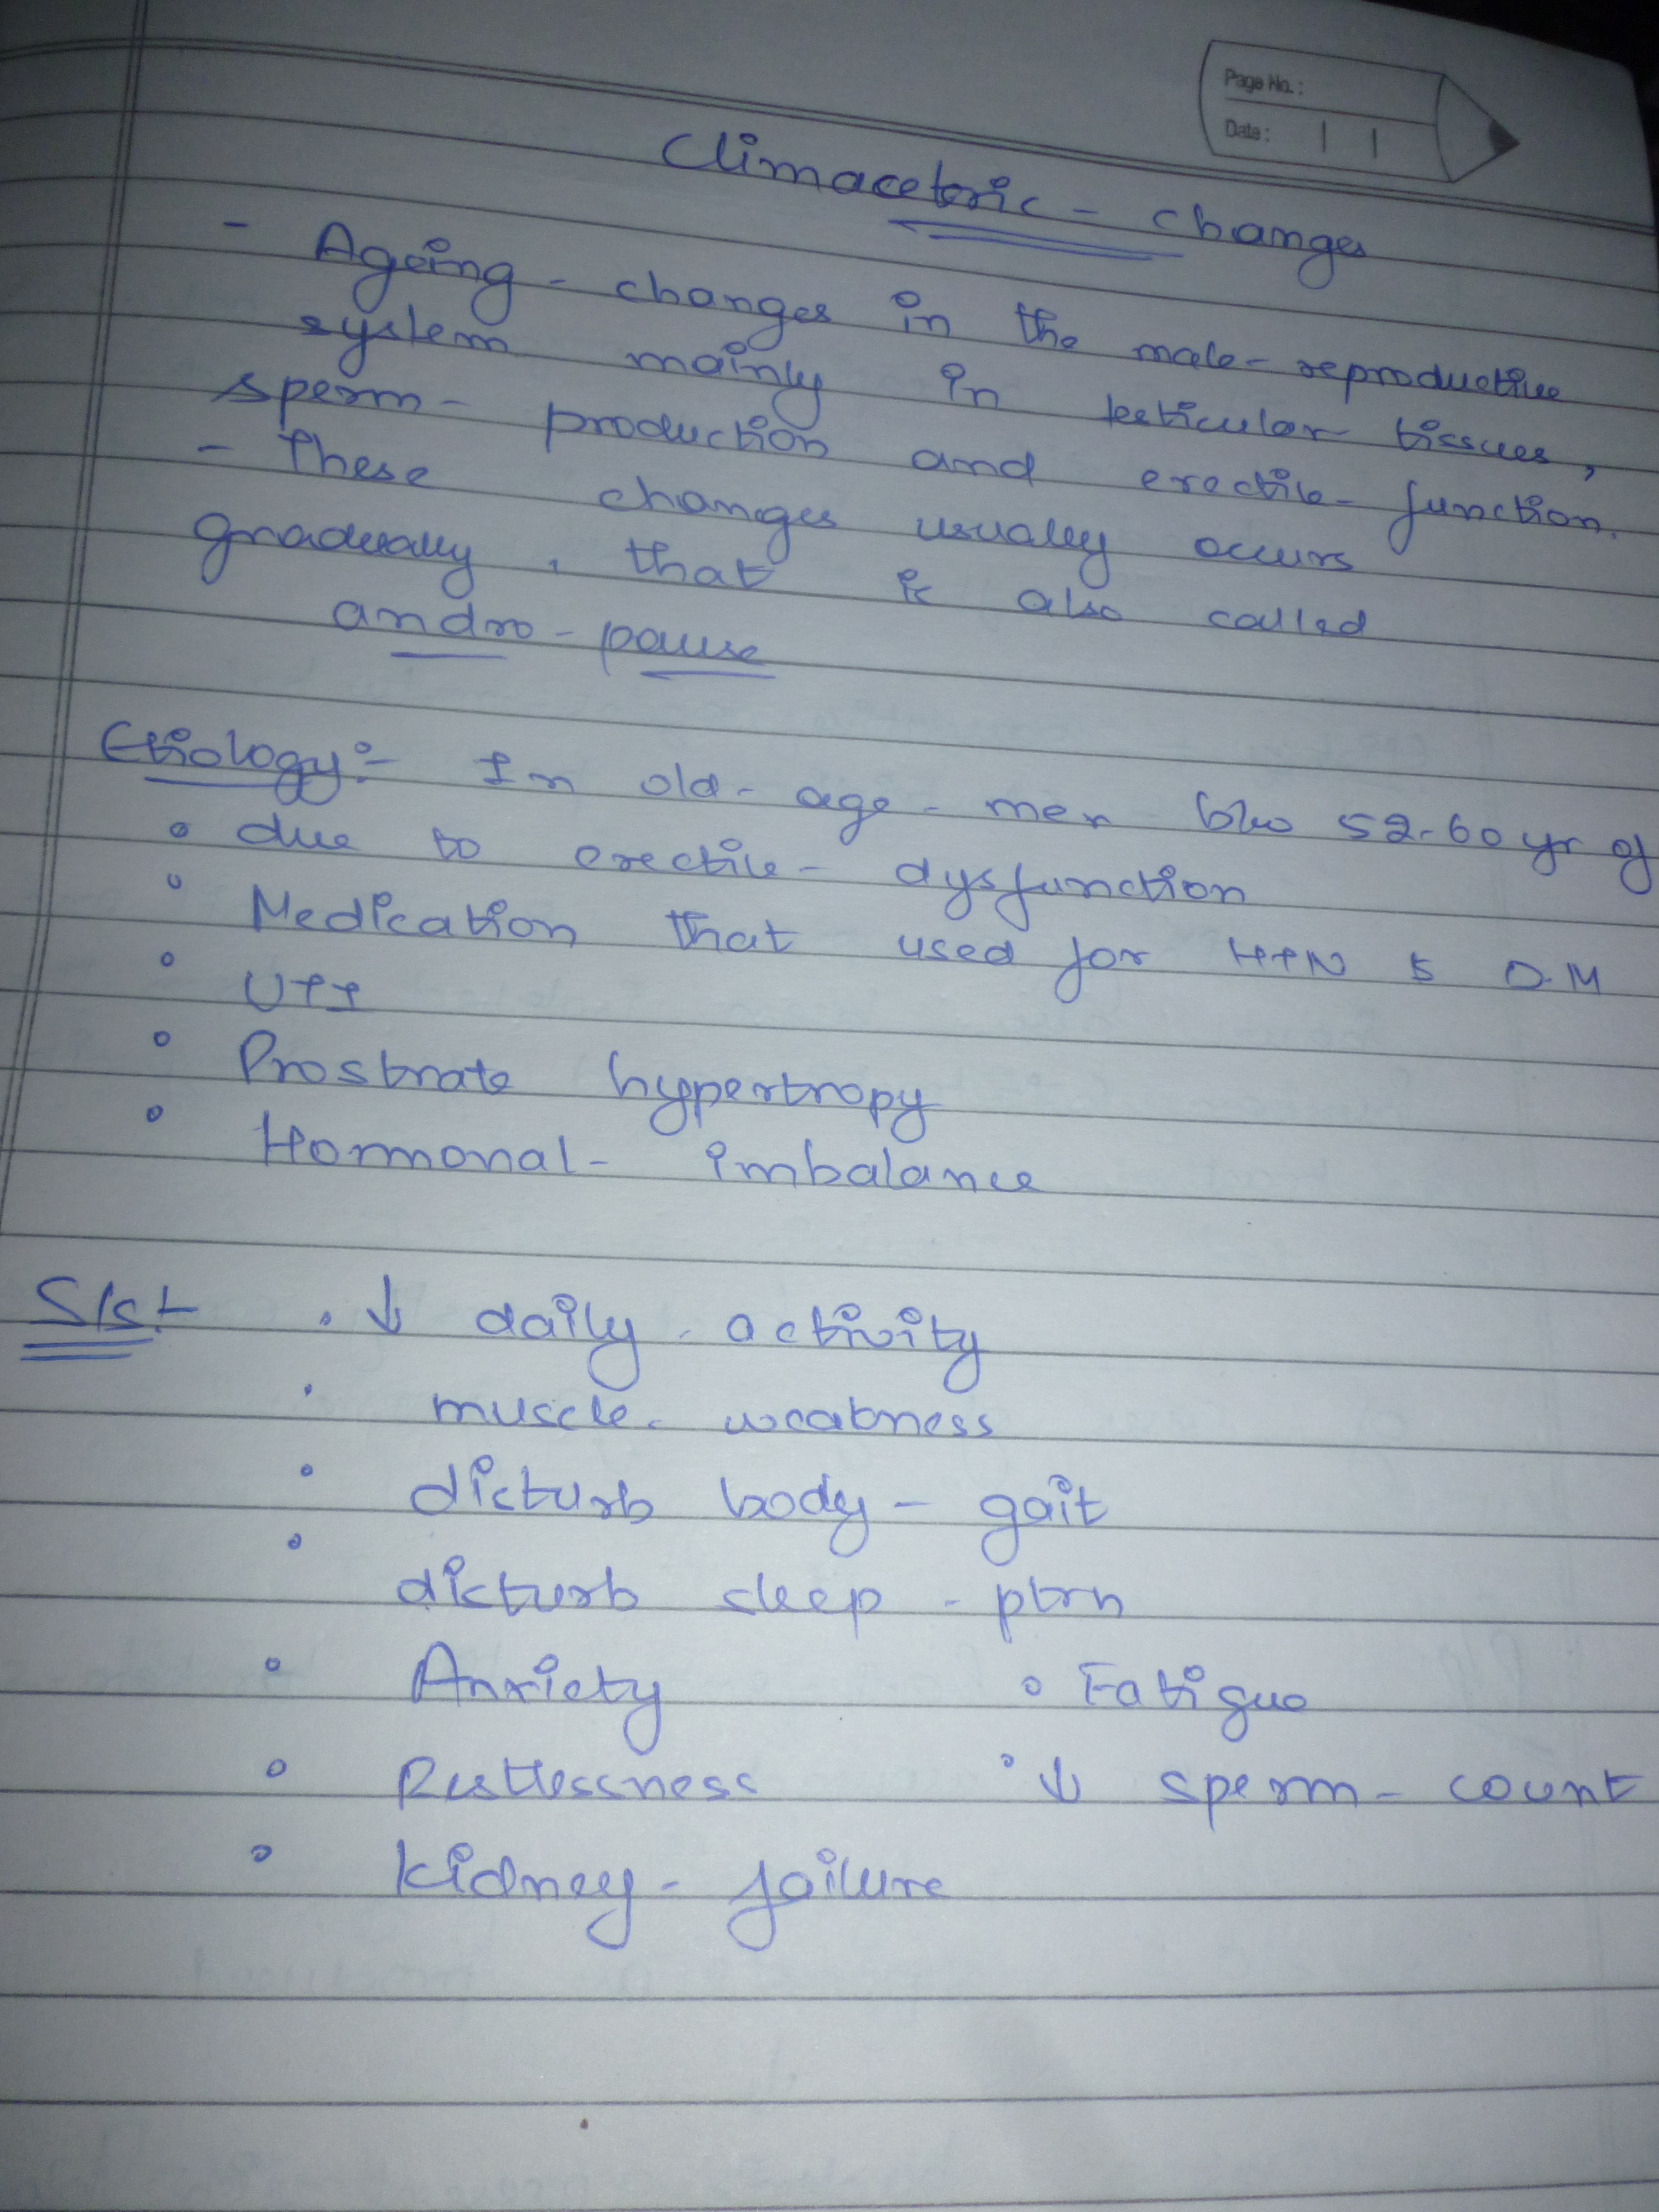 Page No.:
Date:
Climacetoric - changes
- Ageing - changes in the male - reproductive
system mainly in testicular tissues,
sperm - production and erectile - function.
- These changes usually occurs
gradually, that is also called
andro - pause
Etiology:- In old - age - men b/w 52-60 yr of
• due to erectile - dysfunction
• Medication that used for HTN & D.M
• UTI
• Prostrate hypertropy
• Hormonal - imbalance
S/S:- • ↓ daily - activity
• muscle - weakness
• disturb body - gait
• disturb sleep - ptrn
• Anxiety • Fatigue
• Restlessness • ↓ sperm - count
• kidney - failure